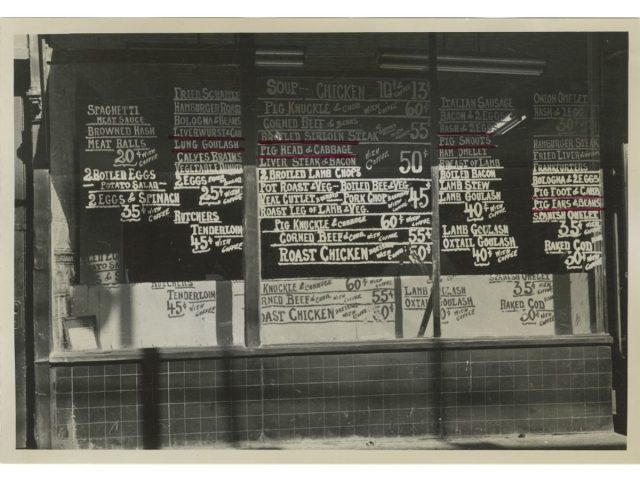 SPAGHETTI
MEAT SAUCE
BROWNED HASH
MEAT BALLS
20¢ WITH COFFEE
2 BOILED EGGS
POTATO SALAD
2 EGGS & SPINACH
35¢ WITH COFFEE
HAMBURGER ROAST
BOLOGNA & BEANS
LIVERWURST &
LUNG GOULASH
CALVES BRAINS
VEGETABLE DINNER
2 EGGS
25¢ WITH COFFEE
BUTCHERS
TENDERLOIN
45¢ WITH COFFEE
SOUP CHICKEN 10¢ 15¢
PIG KNUCKLE & CABB. WITH COFFEE 60¢
CORNED BEEF &
BROILED SIRLOIN STEAK 55
PIG HEAD & CABBAGE
LIVER STEAK & BACON
WITH COFFEE 50¢
2 BROILED LAMB CHOPS
POT ROAST & VEG BOILED BEE & VEG
VEAL CUTLET PORK CHOP
ROAST LEG OF LAMB & VEG.
45¢
PIG KNUCKLE & CABBAGE 60¢ WITH COFFEE
CORNED BEEF & CABB. WITH COFFEE 55¢
ROAST CHICKEN 50¢
ITALIAN SAUSAGE
BACON & 2 EGGS
HASH & 2 EGGS
PIG SNOUTS
HAM OMELET
BREAST OF LAMB
BOILED BACON
LAMB STEW
LAMB GOULASH
40¢ WITH COFFEE
LAMB GOULASH
OXTAIL GOULASH
40¢ WITH COFFEE
ONION OMELET
HASH & 2 EGGS
30¢
HAMBURGER STEAK
FRIED LIVER &
BOLOGNA & 2 EGGS
PIG FOOT & CABB
PIG EARS & BEANS
SPANISH OMELET
35¢ WITH COFFEE
BAKED COD
30¢ WITH COFFEE
BUTCHERS
TENDERLOIN
45¢ WITH COFFEE
KNUCKLE & CABBAGE 60¢ WITH COFFEE
CORNED BEEF & CABB. WITH COFFEE 55¢
ROAST CHICKEN 50¢
LAMB GOULASH
OXTAIL GOULASH
40¢ WITH COFFEE
SPANISH OMELET
35¢ WITH COFFEE
BAKED COD
30¢ WITH COFFEE